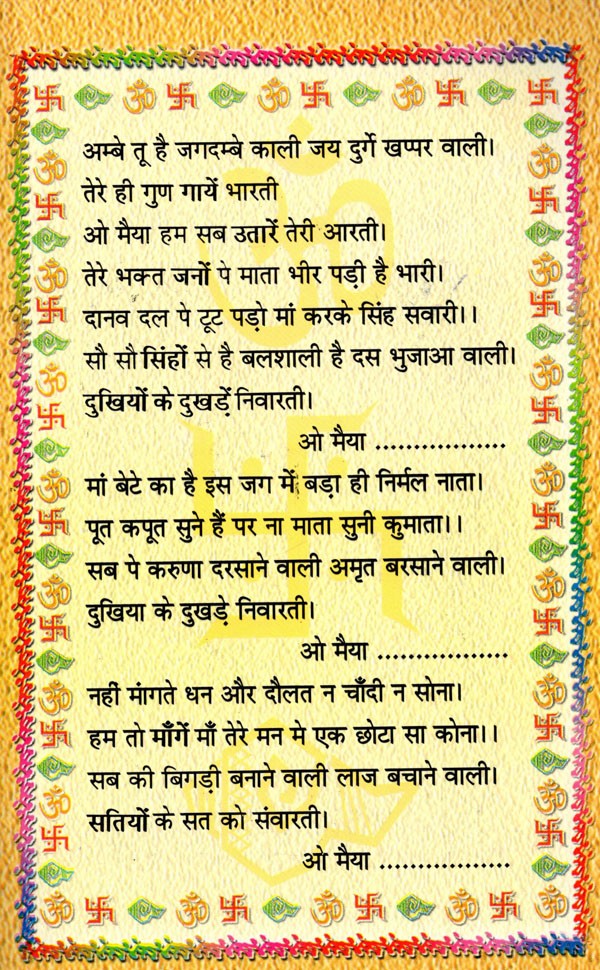 अम्बे तू है जगदम्बे काली जय दुर्गे खप्पर वाली।
तेरे ही गुण गायें भारती
ओ मैया हम सब उतारें तेरी आरती।
तेरे भक्त जनों पे माता भीर पड़ी है भारी।
दानव दल पे टूट पड़ो मां करके सिंह सवारी।।
सौ सौ सिंहों से है बलशाली है दस भुजाआ वाली।
दुखियों के दुखड़ें निवारती।
ओ मैया ..................
मां बेटे का है इस जग में बड़ा ही निर्मल नाता।
पूत कपूत सुने हैं पर ना माता सुनी कुमाता।।
सब पे करुणा दरसाने वाली अमृत बरसाने वाली।
दुखिया के दुखड़े निवारती।
ओ मैया ..................
नहीं मांगते धन और दौलत न चाँदी न सोना।
हम तो माँगें माँ तेरे मन मे एक छोटा सा कोना।।
सब की बिगड़ी बनाने वाली लाज बचाने वाली।
सतियों के सत को संवारती।
ओ मैया ..................